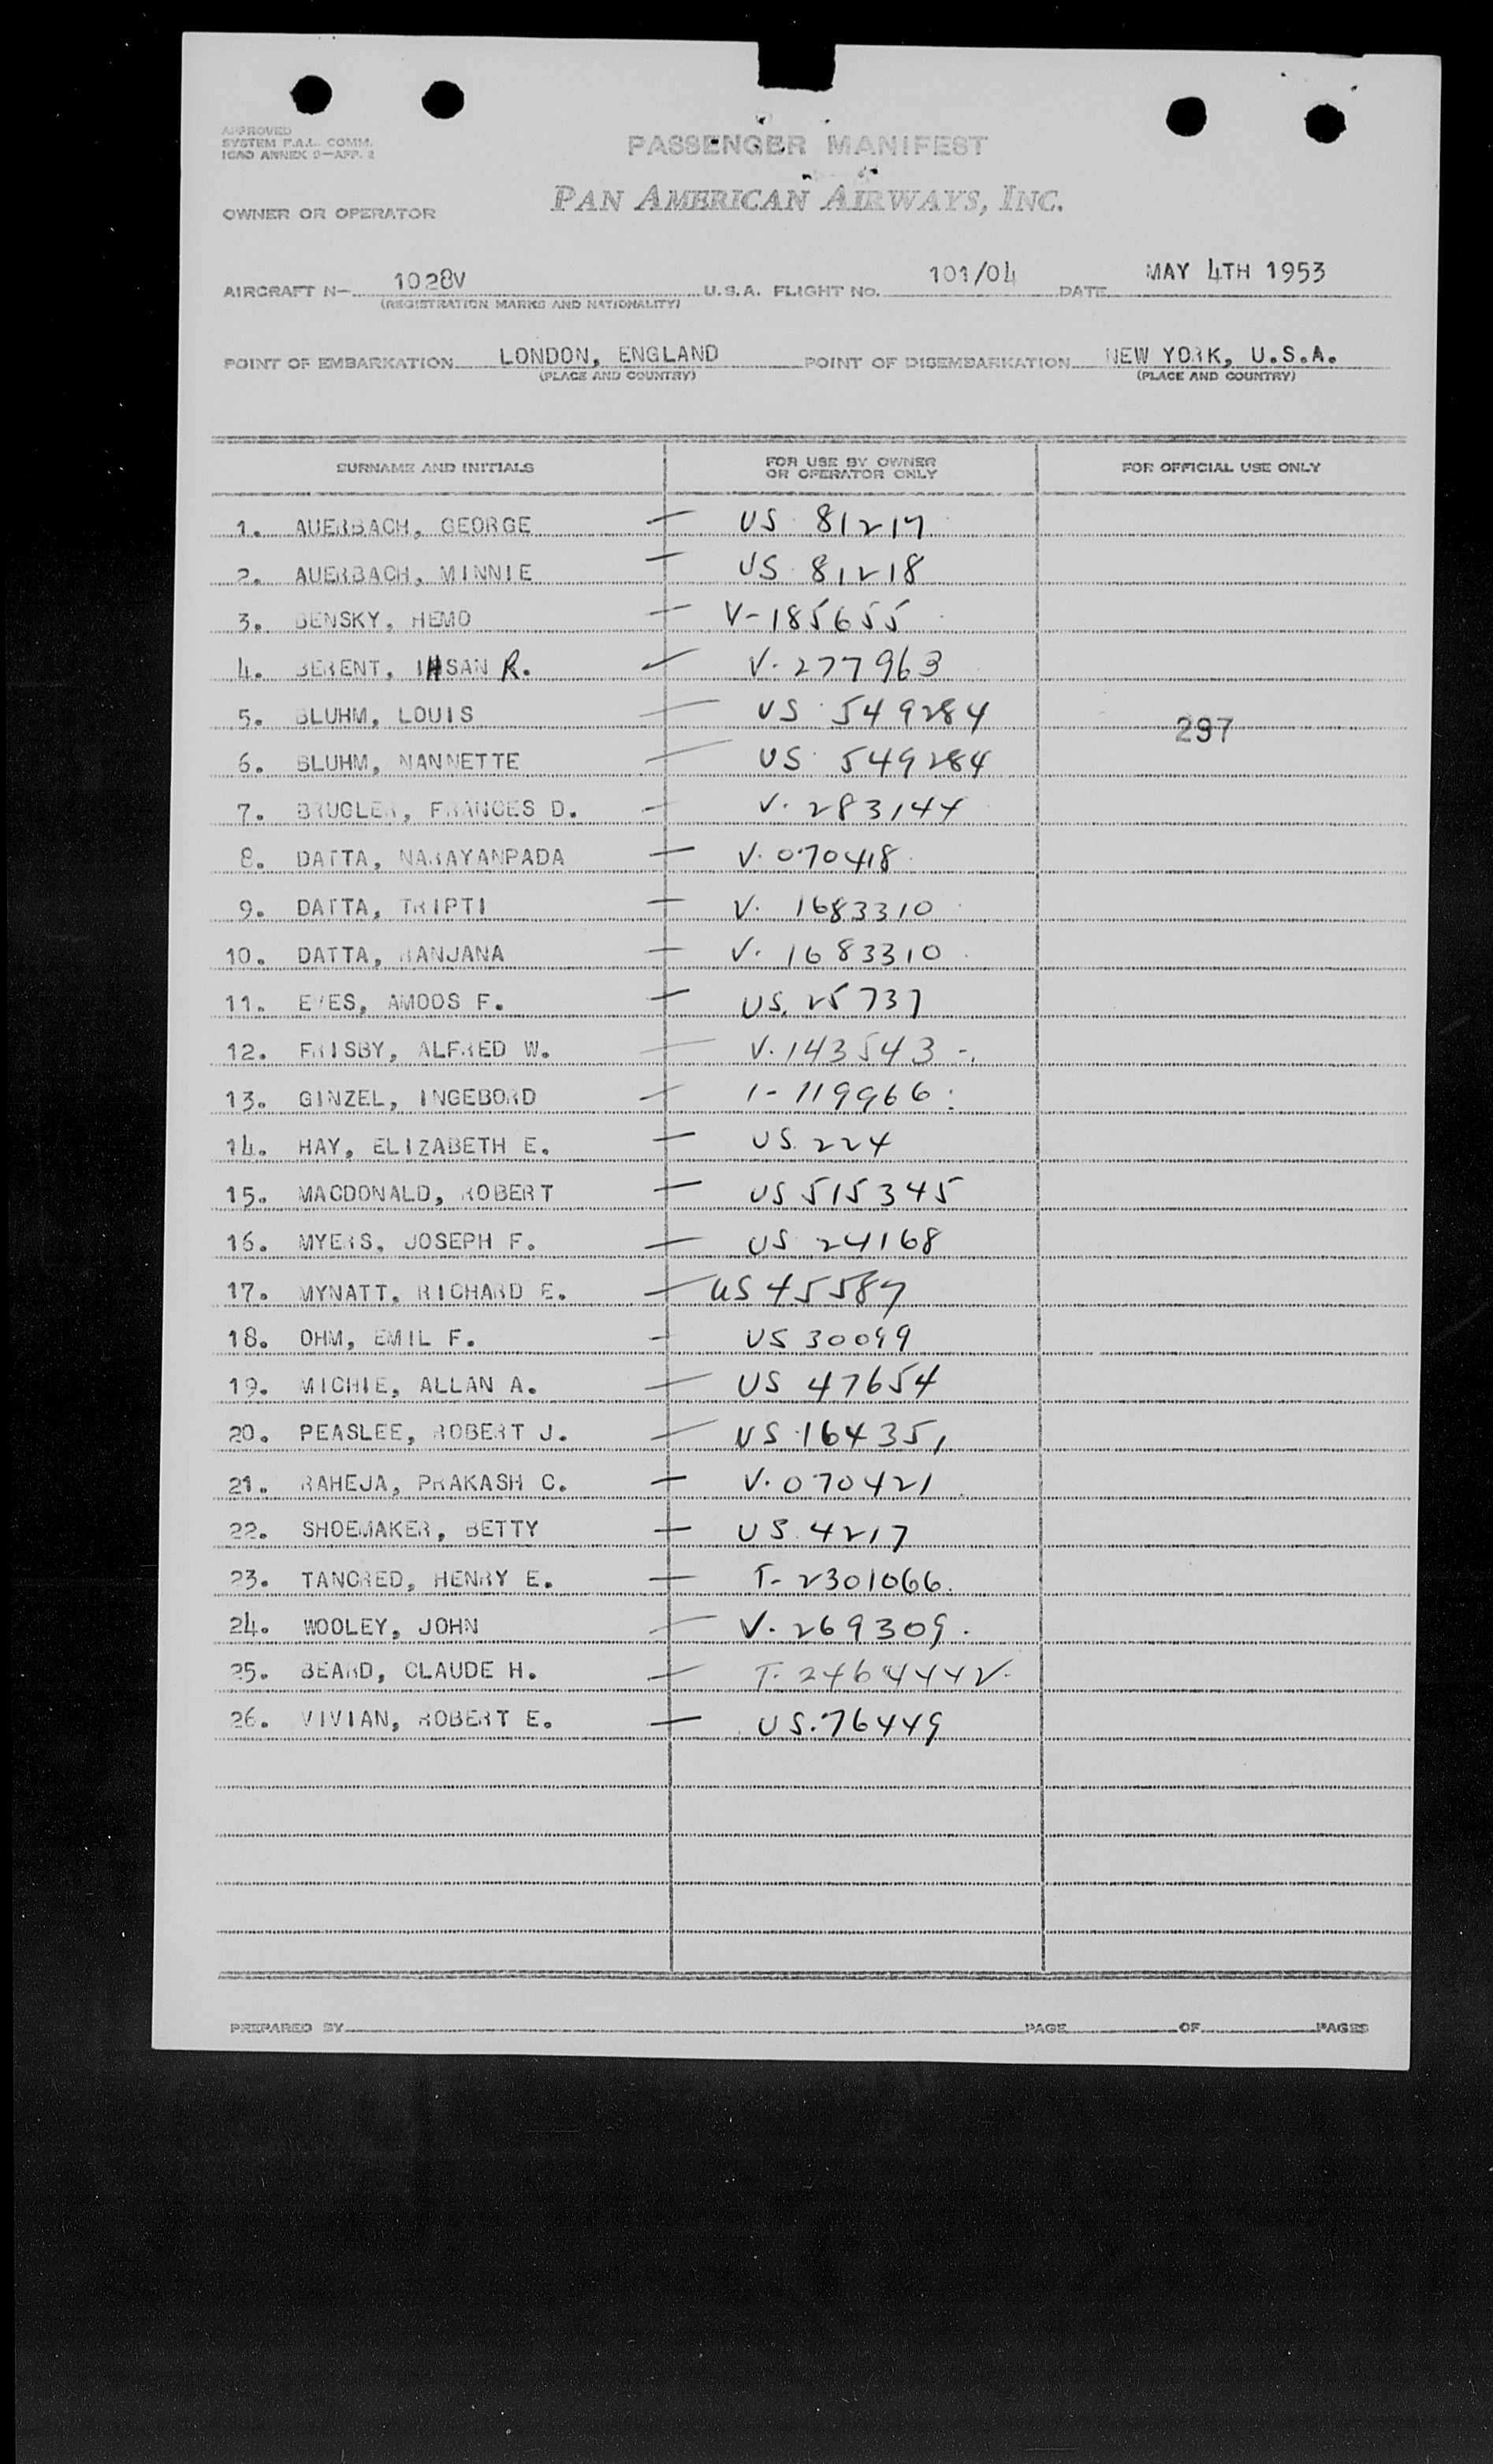 APPROVED
SYSTEM F.A.L. COMM.
ICAO ANNEX 9—APP. 2
PASSENGER MANIFEST
OWNER OR OPERATOR PAN AMERICAN AIRWAYS, INC.
AIRCRAFT N— 1028V U.S.A. FLIGHT NO. 101/04 DATE MAY 4TH 1953
(REGISTRATION MARKS AND NATIONALITY)
POINT OF EMBARKATION LONDON, ENGLAND POINT OF DISEMBARKATION NEW YORK, U.S.A.
(PLACE AND COUNTRY) (PLACE AND COUNTRY)
SURNAME AND INITIALS FOR USE BY OWNER OR OPERATOR ONLY FOR OFFICIAL USE ONLY
1. AUERBACH, GEORGE — US 81217
2. AUERBACH, MINNIE — US 81218
3. BENSKY, HEMO — V-185655
4. BERENT, IHSAN R. — V. 277963
5. BLUHM, LOUIS — US 549284 297
6. BLUHM, NANNETTE — US 549284
7. BRUGLER, FRANCES D. — V. 283144
8. DATTA, NARAYANPADA — V. 070418
9. DATTA, TRIPTI — V. 1683310
10. DATTA, RANJANA — V. 1683310
11. EVES, AMOOS F. — US. 25737
12. FRISBY, ALFRED W. — V. 143543 -.
13. GINZEL, INGEBORD — I-119966
14. HAY, ELIZABETH E. — US. 224
15. MACDONALD, ROBERT — US 515345
16. MYERS, JOSEPH F. — US 24168
17. MYNATT, RICHARD E. — US 45587
18. OHM, EMIL F. — US 30099
19. MICHIE, ALLAN A. — US 47654
20. PEASLEE, ROBERT J. — US 164351
21. RAHEJA, PRAKASH C. — V. 070421
22. SHOEMAKER, BETTY — US 4217
23. TANCRED, HENRY E. — T-2301066.
24. WOOLEY, JOHN — V. 269309.
25. BEARD, CLAUDE H. — T. 2464442.
26. VIVIAN, ROBERT E. — US. 76449
PREPARED BY PAGE OF PAGES